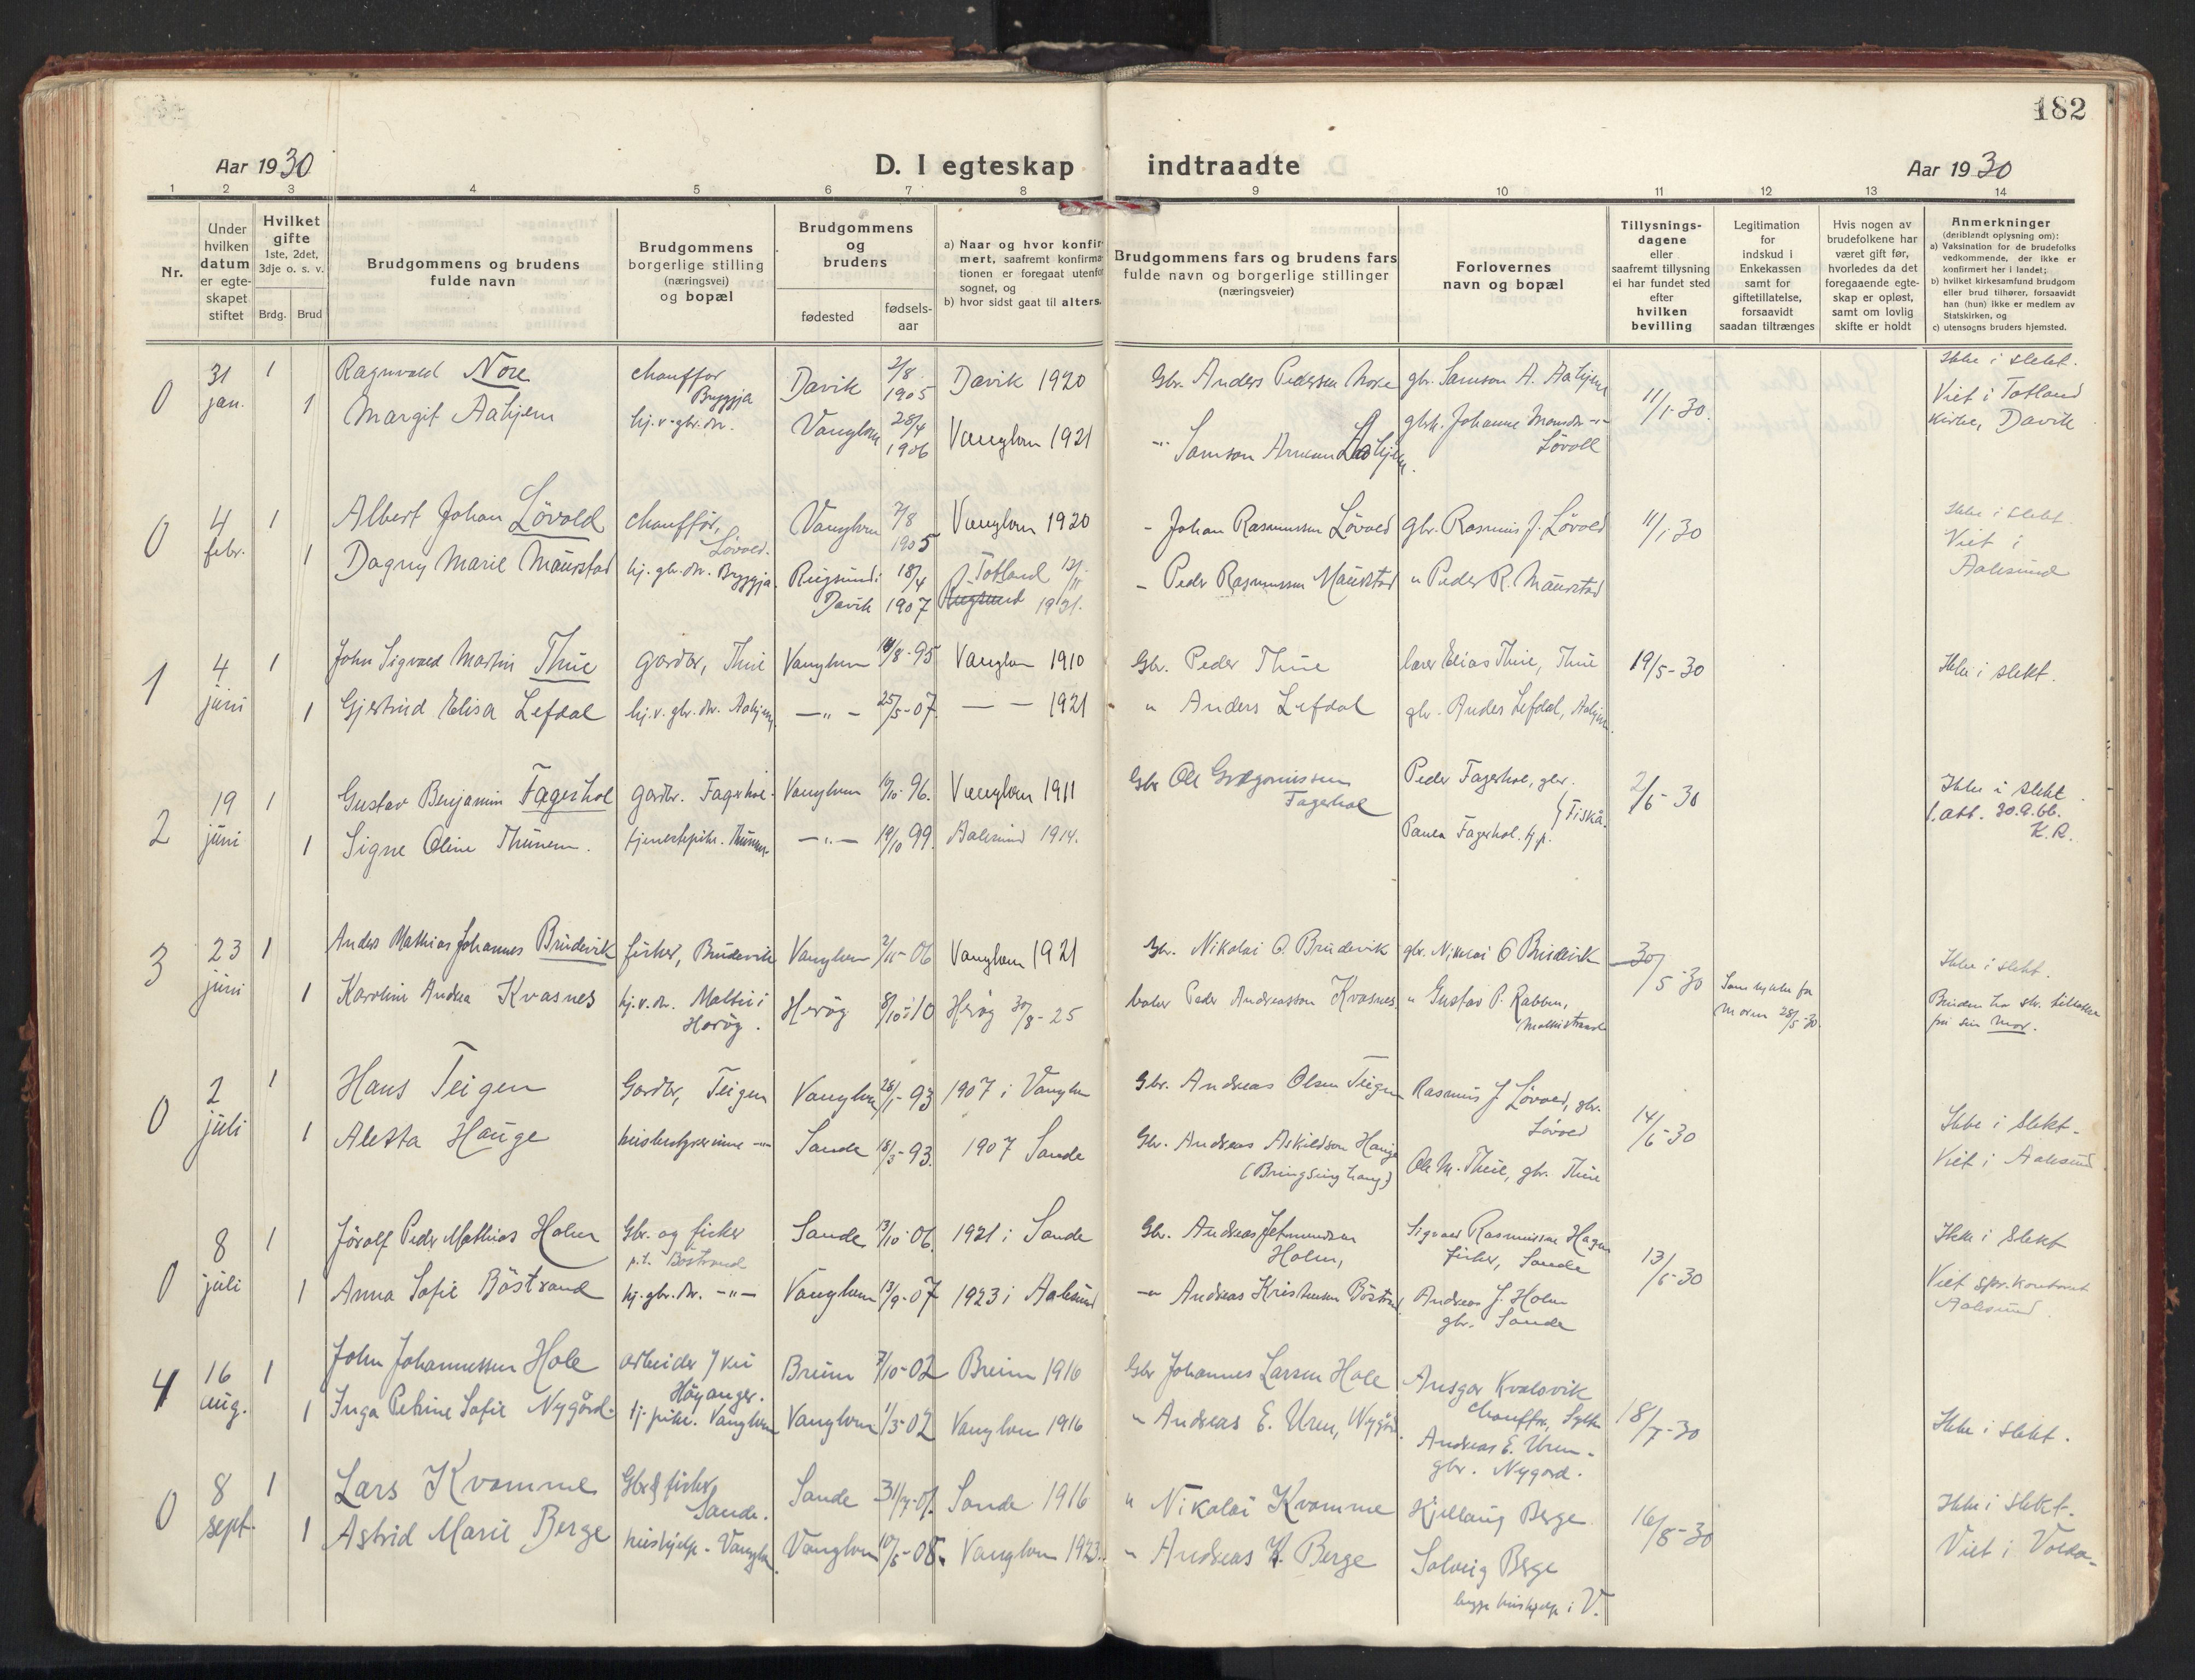 182
Aar 1930
D. I egteskap indtraadte
Aar 1930
1 2 3 4 5 6 7 8 9 10 11 12 13 14
Nr.
Under
hvilken
datum
er egte-
skapet
stiftet
Hvilket
gifte
1ste, 2det,
3dje o. s. v.
Brdg. Brud
Brudgommens og brudens
fulde navn
Brudgommens
borgerlige stilling
(næringsvei)
og bopæl
Brudgommens
og
brudens
fødested
fødsels-
aar
a) Naar og hvor konfir-
mert, saafremt konfirma-
tionen er foregaat utenfor
sognet, og
b) hvor sidst gaat til alters.
Brudgommens fars og brudens fars
fulde navn og borgerlige stillinger
(næringsveier)
Forlovernes
navn og bopæl
Tillysnings-
dagene
eller
saafremt tillysning
ei har fundet sted
efter
hvilken
bevilling
Legitimation
for
indskud i
Enkekassen
samt for
giftetillatelse,
forsaavidt
saadan tiltrænges
Hvis nogen av
brudefolkene har
været gift før,
hvorledes da det
foregaaende egte-
skap er opløst,
samt om lovlig
skifte er holdt
Anmerkninger
(deriblandt oplysning om):
a) Vaksination for de brudefolks
vedkommende, der ikke er
konfirmert her i landet;
b) hvilket kirkesamfund brudgom
eller brud tilhører, forsaavidt
han (hun) ikke er medlem av
Statskirken, og
c) utensogns bruders hjemsted.
0 31 jan. 1 Ragnvald Nore chauffør Bryggja Davik 2/8 1905 Davik 1920 Gbr. Anders Pedersen Nore gbr. Samson A. Aahjem 11/1-30. Ikke i slekt.
Viet i Totland
Kirke, Davik
1 Margit Aahjem hj.v. gbr.dtr. Vanylven 28/4 1906 Vanylven 1921 -"- Samson Arnesen Aahjem Løvoll
0 4 febr. 1 Albert Johan Løvold chauffør, Løvold. Vanylven 7/8 1905 Vanylven 1920 - Johan Rasmussen Løvold gbr. Rasmus J. Løvold 11/1 30 Ikke i slekt.
Viet i
Aalesund
1 Dagny Marie Maurstad hj. gbr. dtr. Bryggja. Rugsund i Davik 18/4 1907 Totland Rugsund 1921. - Peder Rasmussen Maurstad " Peder R. Maurstad
1 4 juni 1 John Sigvald Martin Thue gardbr, Thue Vanylven 14/8-95 Vanylven 1910 Gbr. Peder Thue lærer Elias Thue, Thue 19/5-30 Ikke i slekt.
1 Gjertrud Elisa Lefdal hj.v. gbr. dtr. Aahjem -"- 25/5-07 - - 1921 " Anders Lefdal gbr. Anders Lefdal, Aahjem
2 19 juni 1 Gustav Benjamin Fagerhol gardbr. Fagerhol. Vanylven 96. Vanylven 1911 Gbr Ole Gregoriussen Fagerhol Peder Fagerhol, gbr. 2/6-30 Ikke i slekt
l. att. 30.9.66.
K.R.
1 Signe Oline Thunem. tjenestepike. Thunem -"- 19/10 99. Aalesund 1914. Paula Fagerhol. tj.p. Fiskå.
3 23 juni 1 Anders Mathias Johannes Brudevik fisker, Brudevik Vanylven 06 Vanylven 1921 Gbr. Nikolai O. Brudevik gbr. Nikolai O Brudevik 30/5-30 Ikke i slekt.
1 Karoline Andrea Kvasnes hj.v. dtr. Moltu i Herøy. Herøy 8/10-10 Herøy 30/8-25 Peder Andreassen Kvasnes " Gustav P. Rabben, Samtykke fra
moren 28/5-30. Bruden har skr. tillatelse
fra sin mor.
0 2 juli 1 Hans Teigen Gardbr, Teigen Vanylven 28/1-93 1907 i Vanylven Gbr. Andreas Olsen Teigen Rasmus J. Løvold, gbr. Løvold 14/6-30 Ikke i slekt-
Viet i Aalesund
1 Aletta Hauge husbestyrerinne -"- Sande 18/3-93. 1907 Sande Gbr. Andreas Askildsen Hauge (Bringsinghaug) Ole M. Thue, gbr. Thue
0 8 juli 1 Jørolf Peder Mathias Holm Gbr. og fisker p.t. Bøstrand Sande 13/10-06. 1921 i Sande Gbr. Andreas Jetmundsen Holm, Sigvald Rasmussen Hagen fisker, Sande 13/6-30 Ikke i slekt
Viet spr.kontoret
Aalesund.
1 Anna Sofie Bøstrand hj. gbr. dtr. -"- Vanylven 13/9-07 1923 i Aalesund -" Andreas Kristensen Bøstrand Andreas J. Holm gbr. Sande
4 16 aug. 1 John Johannessen Hole arbeider Høyanger. Breim 7/10-02 Breim 1916 Gbr Johannes Larsen Hole Ansgar Kvalsvik chauffør, Sylte 18/7-30 Ikke i slekt.
1 Inga Petrine Sofie Nygård. tj. pike. Vanylven Vanylven 1/3-02 Vanylven 1916 " Andreas E. Uren, Nygård. Andreas E. Uren - gbr. Nygård.
0 8 sept. 1 Lars Kvamme Gbr & fisker, Sande. Sande 31/7-01. Sande 1916 " Nikolai Kvamme Kjellaug Berge 16/8-30 Ikke i slekt.
Viet i Volda-
1 Astrid Marie Berge hushjelp - Vanylven Vanylven 08. Vanylven 1923. " Andreas K. Berge Solveig Berge
begge hushjelp i V.